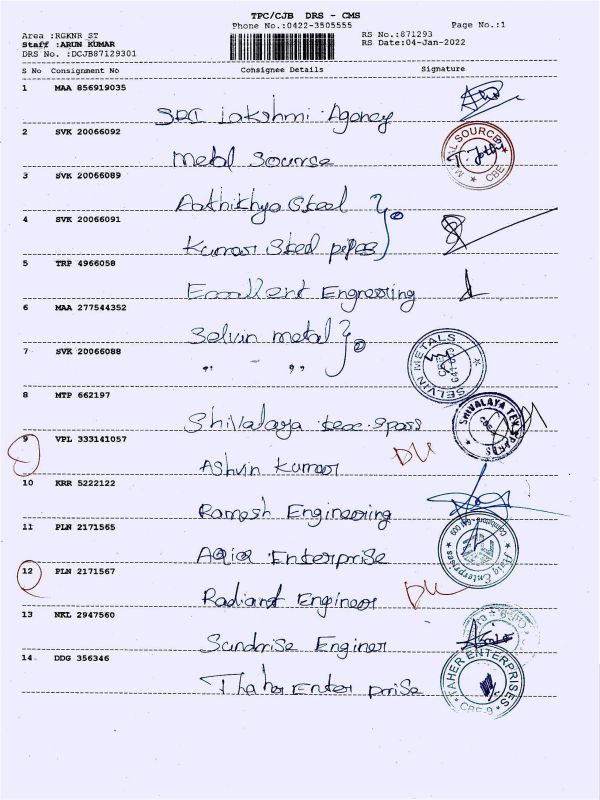 TPC/CJB DRS - CMS
Phone No.:0422-3505555
Page No.:1
Area :RGKNR ST
RS No.:871293
Staff :ARUN KUMAR
RS Date:04-Jan-2022
DRS No. :DCJB87129301
S No Consignment No Consignee Details Signature
1 MAA 856919035
Sri Lakshmi Agency
2 SVK 20066092
Metal Sourse
METAL SOURCE
T. Jothi
CBE
3 SVK 20066089
Aathikhya Steel
4 SVK 20066091
Kumar Steel pipes
5 TRP 4966058
Excellent Engneering
6 MAA 277544352
Selvin metal
7 SVK 20066088
" - "
SELVIN METALS
8 MTP 662197
Shivalaya tex spass
SHIVALAYA TEX SPARES
9 VPL 333141057
Ashvin Kumar DU
10 KRR 5222122
Ramesh Engineering
11 PLN 2171565
Aqia Enterprise
Asia Enterprises
Coimbatore
12 PLN 2171567
Radiant Engineer DU
13 NKL 2947560
Sundrise Enginer
14 DDG 356346
Thaher Enter prise
TAHER ENTERPRISES
CBE-9